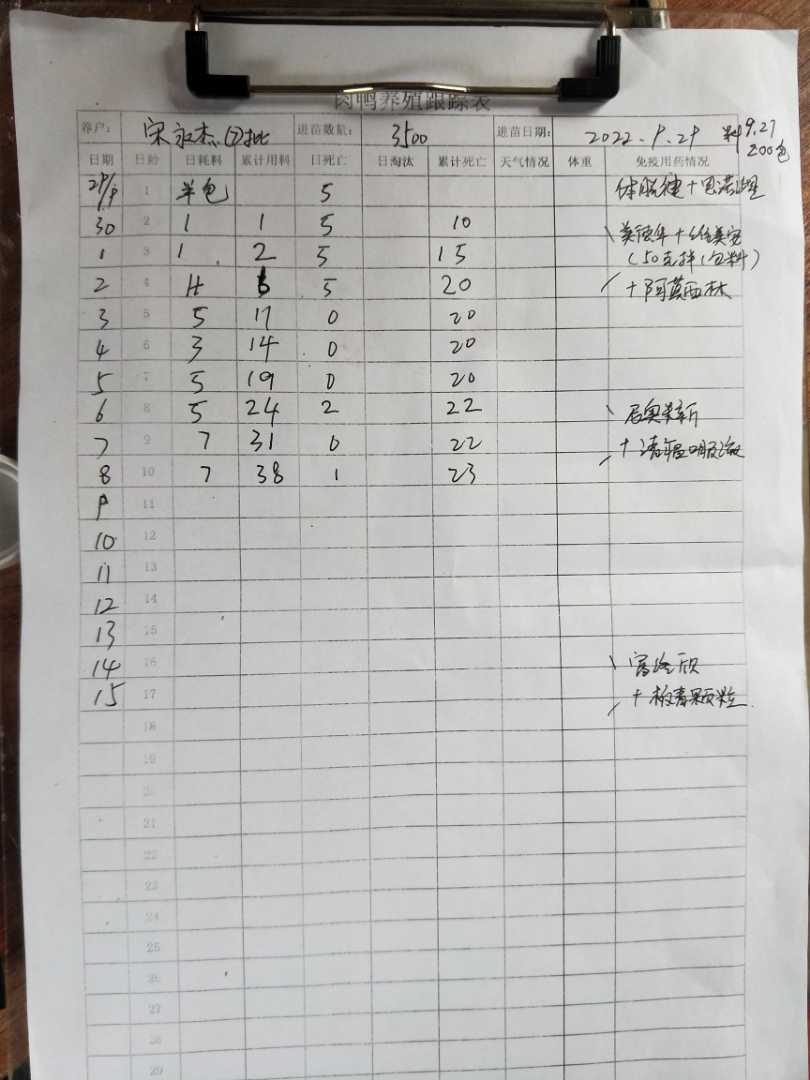 肉鸭养殖跟踪表
养户： 宋永杰 ⑦批 进苗数量： 3500 进苗日期： 2022.9.29 料 9.27
200包
日期 日龄 日耗料 累计用料 日死亡 日淘汰 累计死亡 天气情况 体重 免疫用药情况
29/9 1 半包 5
30 2 1 1 5 10
1 3 1 2 5 15 (50克拌1包料)
2 4 4 6 5 20 +阿莫西林
3 5 5 11 0 20
4 6 3 14 0 20
5 7 5 19 0 20
6 8 5 24 2 22
7 9 7 31 0 22
8 10 7 38 1 23
9 11
10 12
11 13
12 14
13 15
14 16
15 17 +板青颗粒
18
19
20
21
22
23
24
25
26
27
28
29